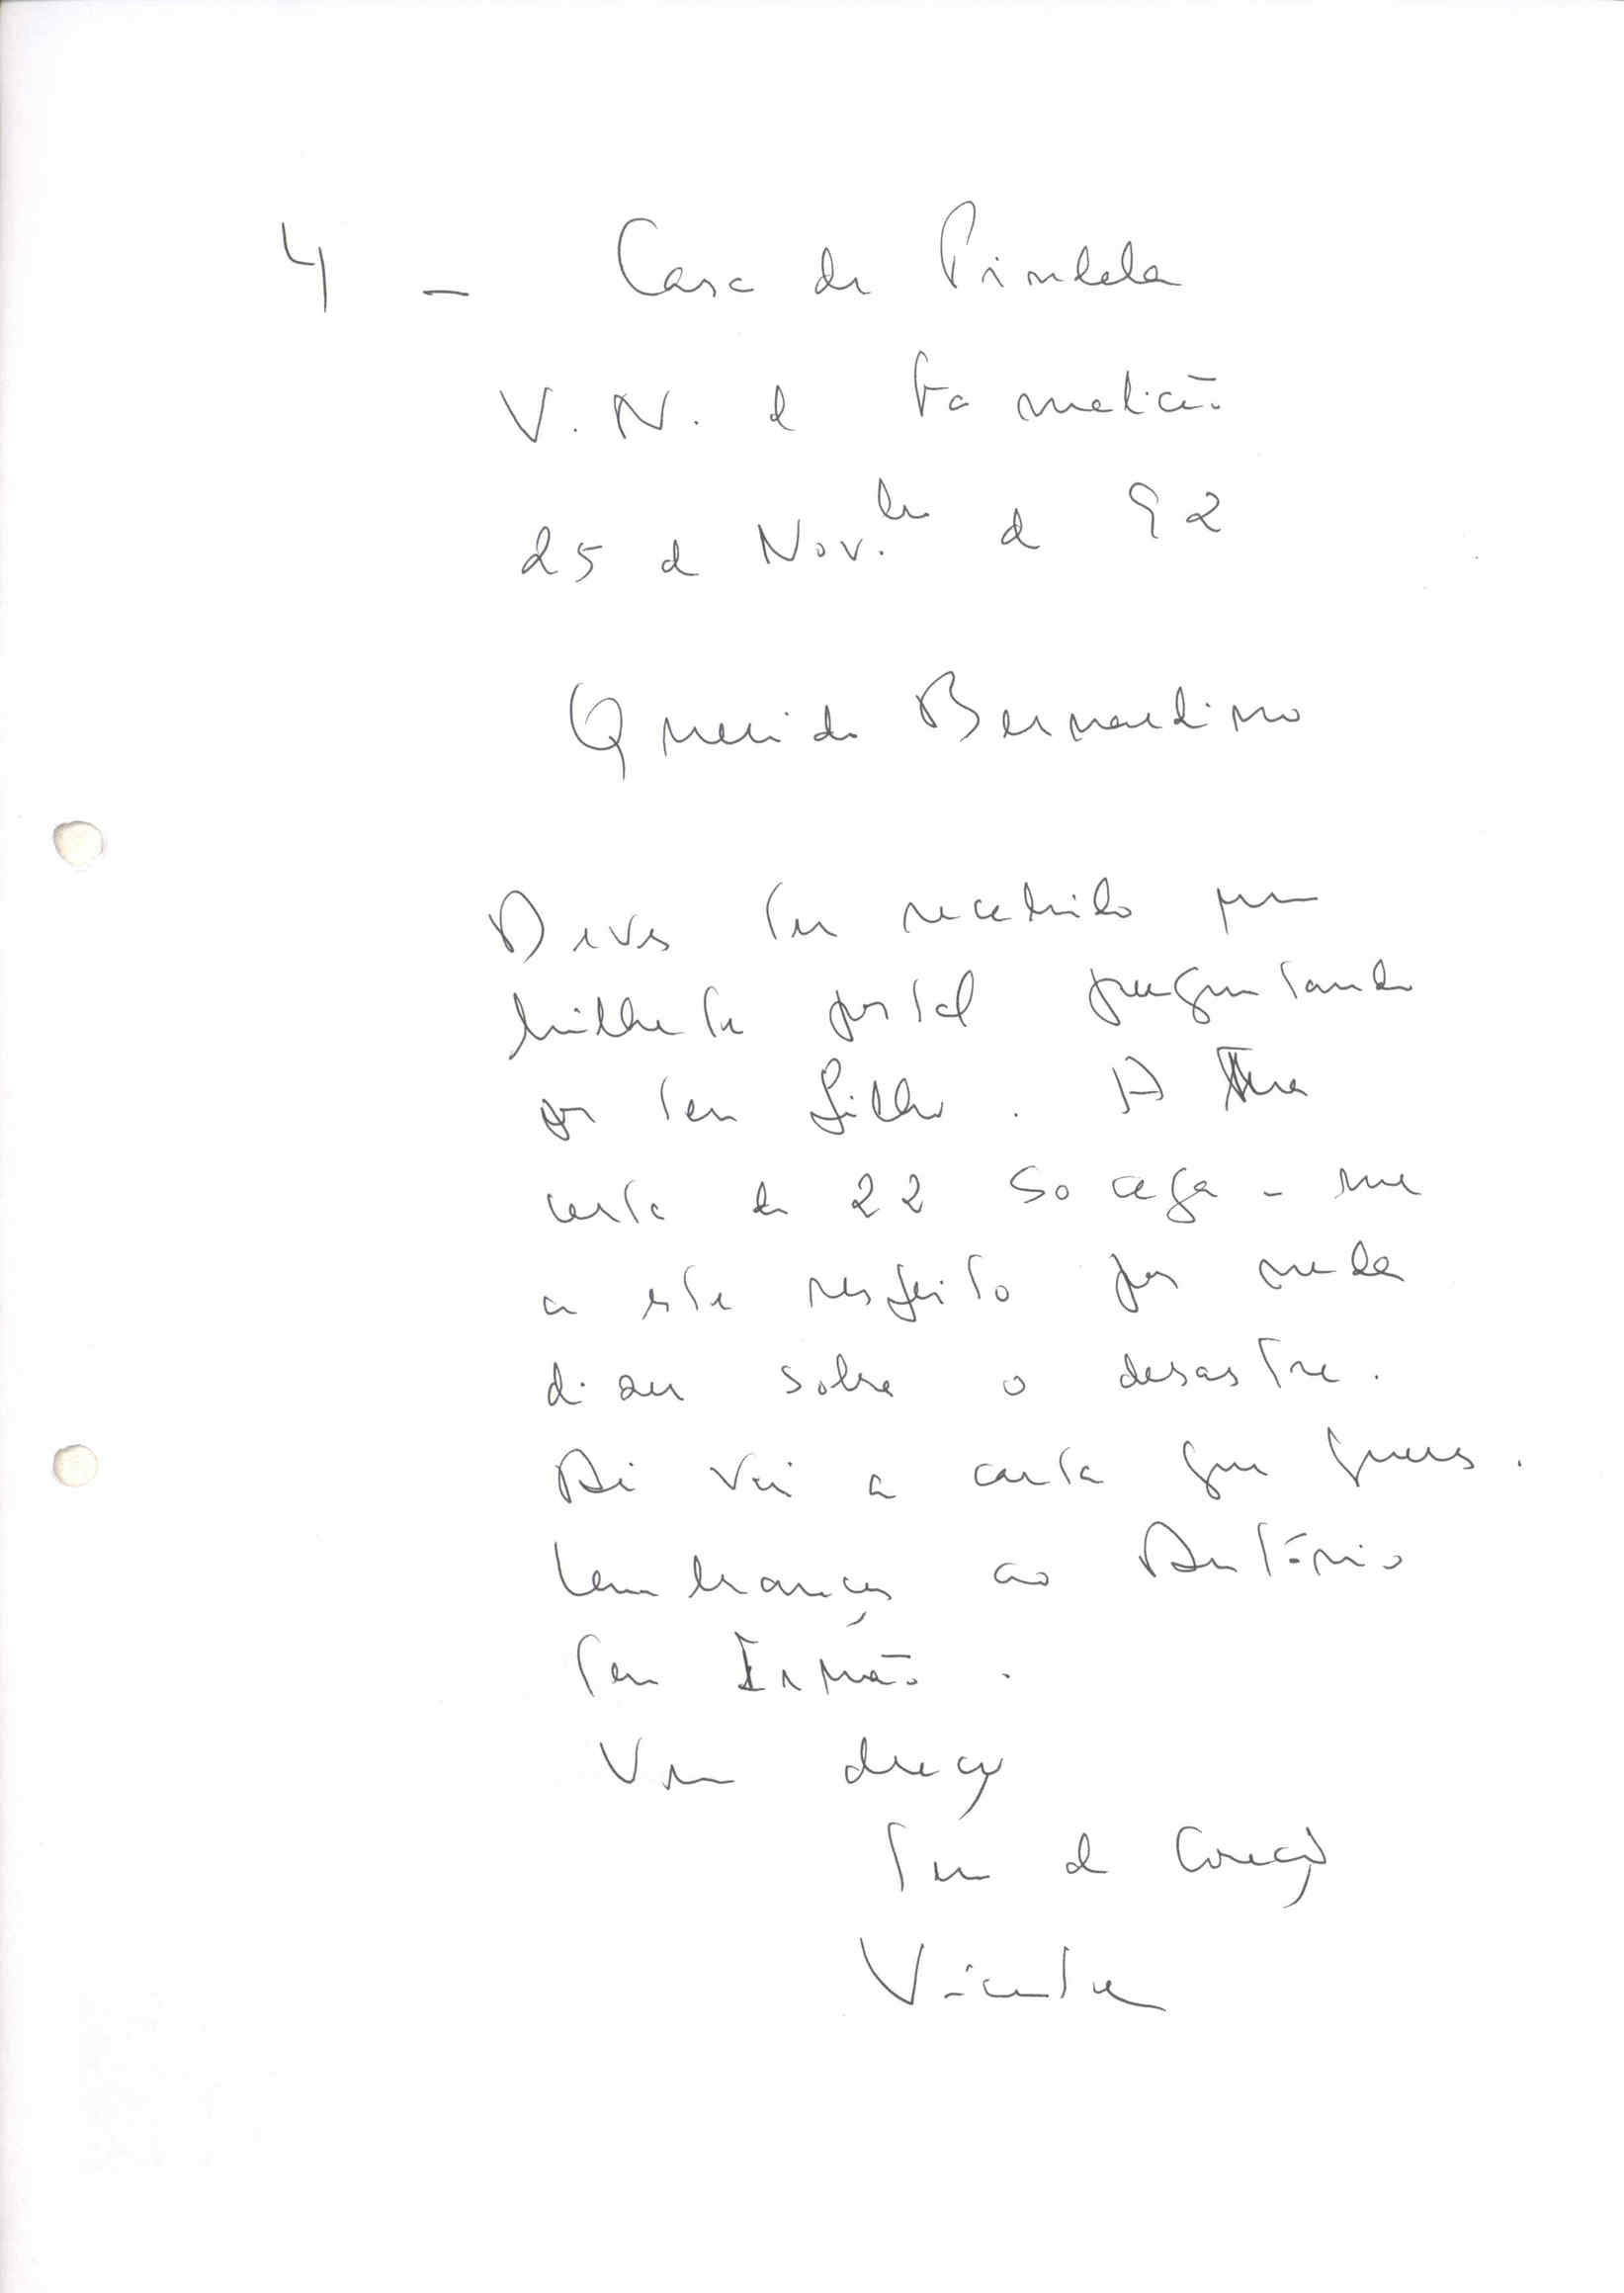 4 - Casa de Pindela
V. N. de Famalicão
25 de Nov.bro de 92
Querido Bernardino
Deves ter recebido um
bilhete postal perguntando
por teu filho. A tua
carta de 22 socega-me
a este respeito por nada
dizer sobre o desastre.
Ai vai a carta que queres.
Lembranças ao António
teu Irmão.
Um abraço
teu de Coração
Vicente